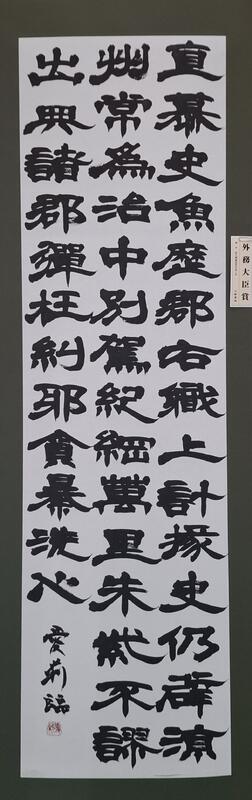 直慕史魚歷郡右職上計掾史仍辟涼
州常為治中別駕紀綱萬里朱紫不謬
出典諸郡彈枉糾邪貪暴洗心
愛莉臨
外務大臣賞